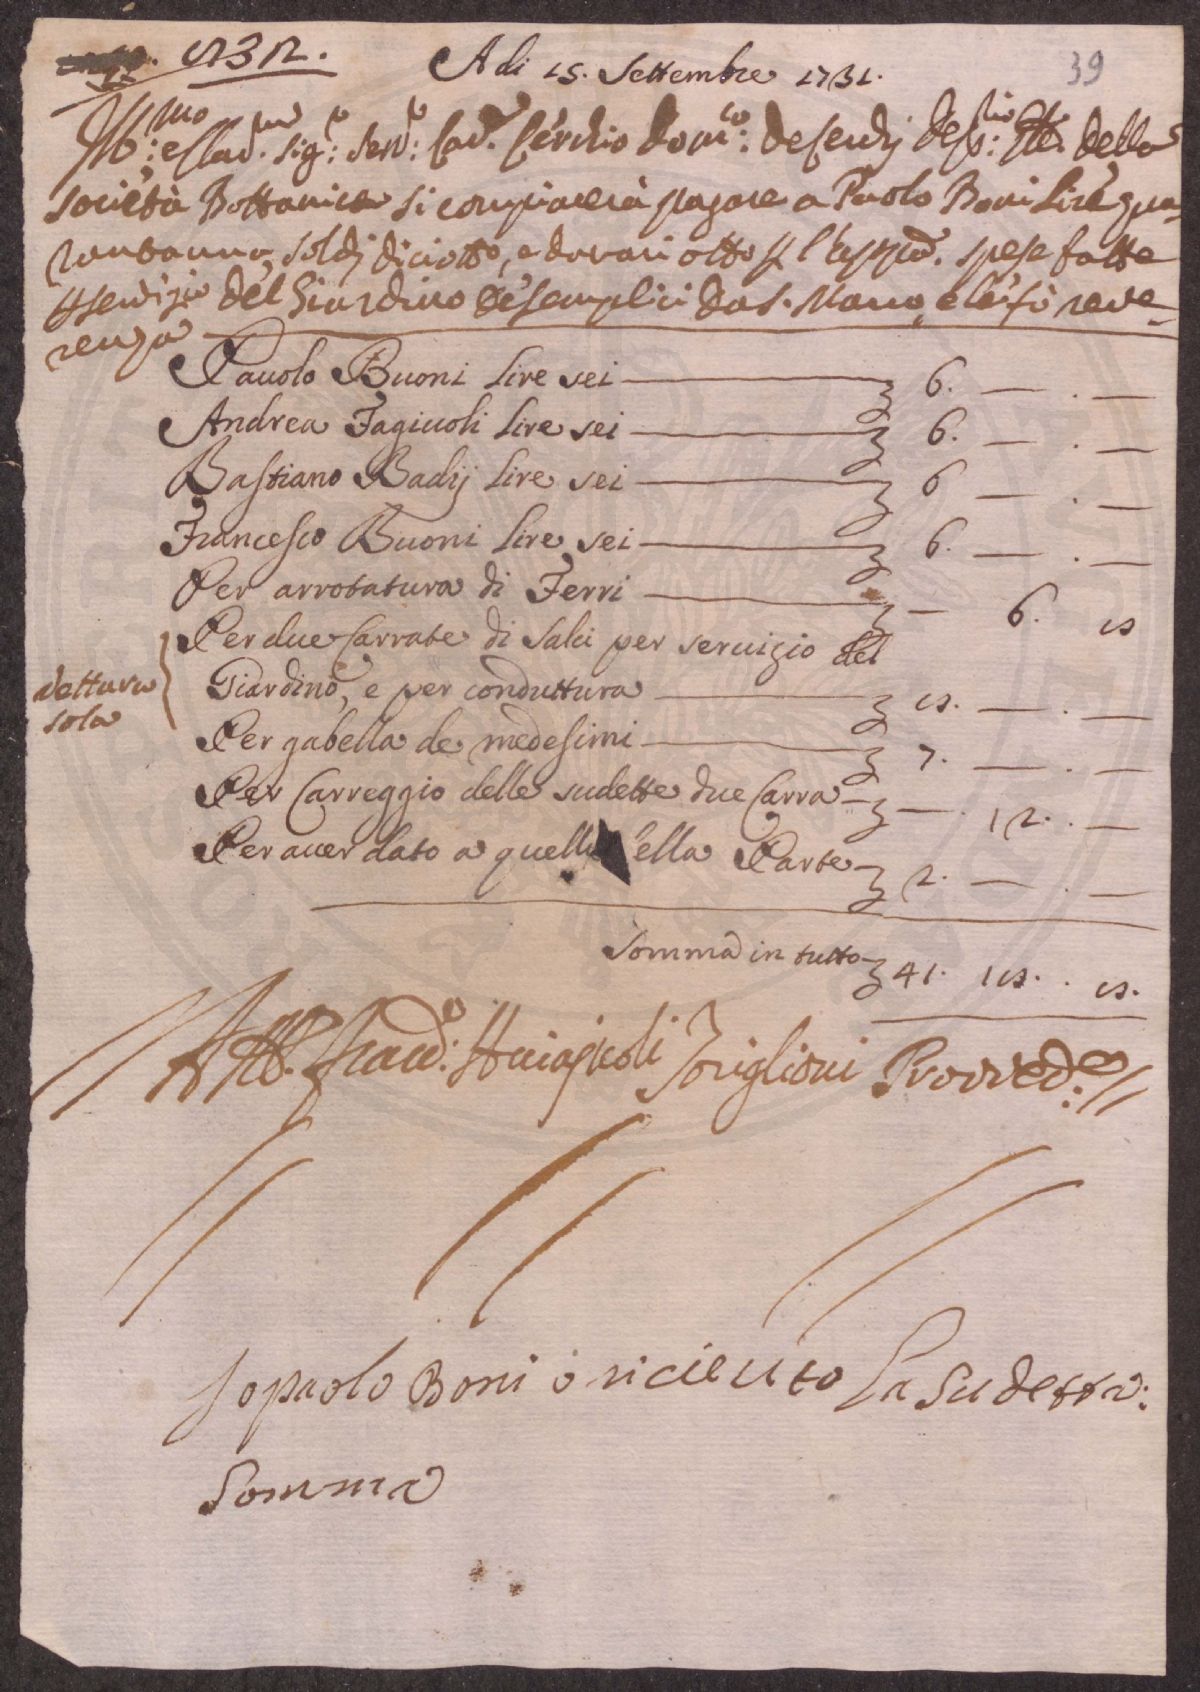 A di 15. Settembre 1731.
39
Ill:mo e Clar.mo Sig:e Sen:e Cav.e
della
Società Bottanica si compiacerà pagare a Paolo Boni Lire qua-
rantauno, soldi diciotto, e denari otto spese fatte
servizio del Giardino de Semplici da S. Marco, e le fò reve-
renza
Pauolo Buoni Lire sei 6. — . —
Andrea Fagiuoli Lire sei 6. — . —
Bastiano Badij Lire sei 6 — . —
Francesco Buoni Lire sei 6. — . —
Per arrotatura di Ferri — 6. 8
Per due Carrate di Salci per seruizio del
vettura
sola
Giardino, e per conduttura 8. — . —
Per gabella de medesimi 7. — . —
Per Carreggio delle sudette due Carra — . 12 . —
Per auer dato a quelli della Parte 2. — . —
Somma in tutto 41. 18 . 8.
Provved:e
Jo paolo Boni ò riceuto La Sudetta:
Somma